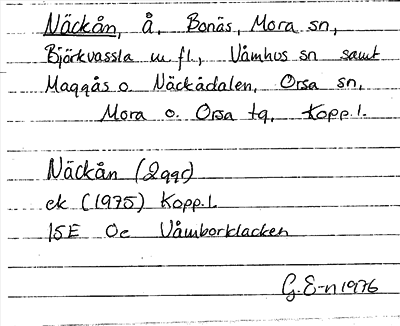 Näckån, å, Bonäs, Mora sn,
Björkvassla m fl., Våmhus sn samt
Maggås o. Näckådalen, Orsa sn,
Mora o. Orsa tg, Kopp. l.
Näckån (2ggr)
ek (1975) Kopp. l.
15E 0e Våmborklacken
G. E-n 1976